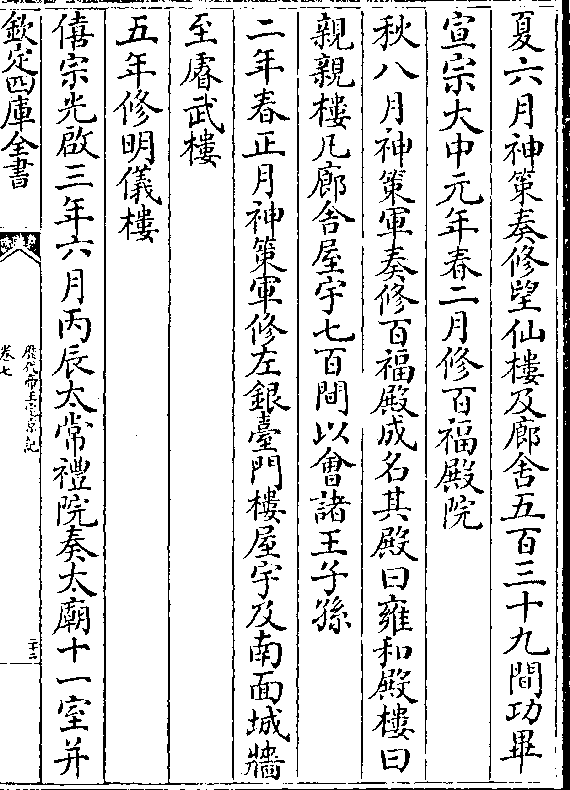 夏六月神策奏修望仙樓及廊舍五百三十九間功畢
宣宗大中元年春二月修百福殿院
秋八月神策軍奏修百福殿成名其殿曰雍和殿樓曰
親親樓凡廊舍屋宇七百間以會諸王子孫
二年春正月神策軍修左銀臺門樓屋宇及南面城牆
至睿武樓
五年修明儀樓
僖宗光啟三年六月丙辰太常禮院奏太廟十一室并
欽定四庫全書
歴代帝王宅京記
卷七
二十二